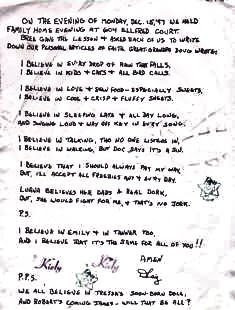 ON THE EVENING OF MONDAY, DEC. 15, '97 WE HELD
FAMILY HOME EVENING AT 6044 ELLERED COURT.
BREE GAVE THE LESSON & ASKED EACH OF US TO WRITE
DOWN OUR PERSONAL ARTICLES OF FAITH. GREAT GRANDPA DOUG WROTE:
I BELIEVE IN EVERY DROP OF RAIN THAT FALLS,
I BELIEVE IN KIDS & CATS & ALL BIRD CALLS.
I BELIEVE IN LOVE & FOOD - ESPECIALLY SWEETS,
I BELIEVE IN COOL & CRISP & FLUFFY SHEETS.
I BELIEVE IN SLEEPING LATE & ALL DAY LONG,
AND SINGING LOUD & WAY OFF KEY IN EVERY SONG.
I BELIEVE IN TALKING, THO NO ONE LISTENS IN,
I BELIEVE IN WALKING, BUT DOC SAYS IT'S A SIN.
I BELIEVE THAT I SHOULD ALWAYS PAY MY WAY
BUT, I'LL ACCEPT ALL FREEBIES ANY & EVERY DAY.
LUANA BELIEVES HER DAD'S A REAL DORK,
BUT, SHE WOULD FIGHT FOR ME, & THAT'S NO JOKE.
P.S.
I BELIEVE IN EMILY & IN TANNER TOO,
AND I BELIEVE THAT IT'S THE SAME FOR ALL OF YOU!!
AMEN
Kirby Kirby
Doug
P.P.S.
WE ALL BELIEVE IN SOON-BORN DOLL,
AND ROBERT'S COMING JAMES - WILL THAT BE ALL?